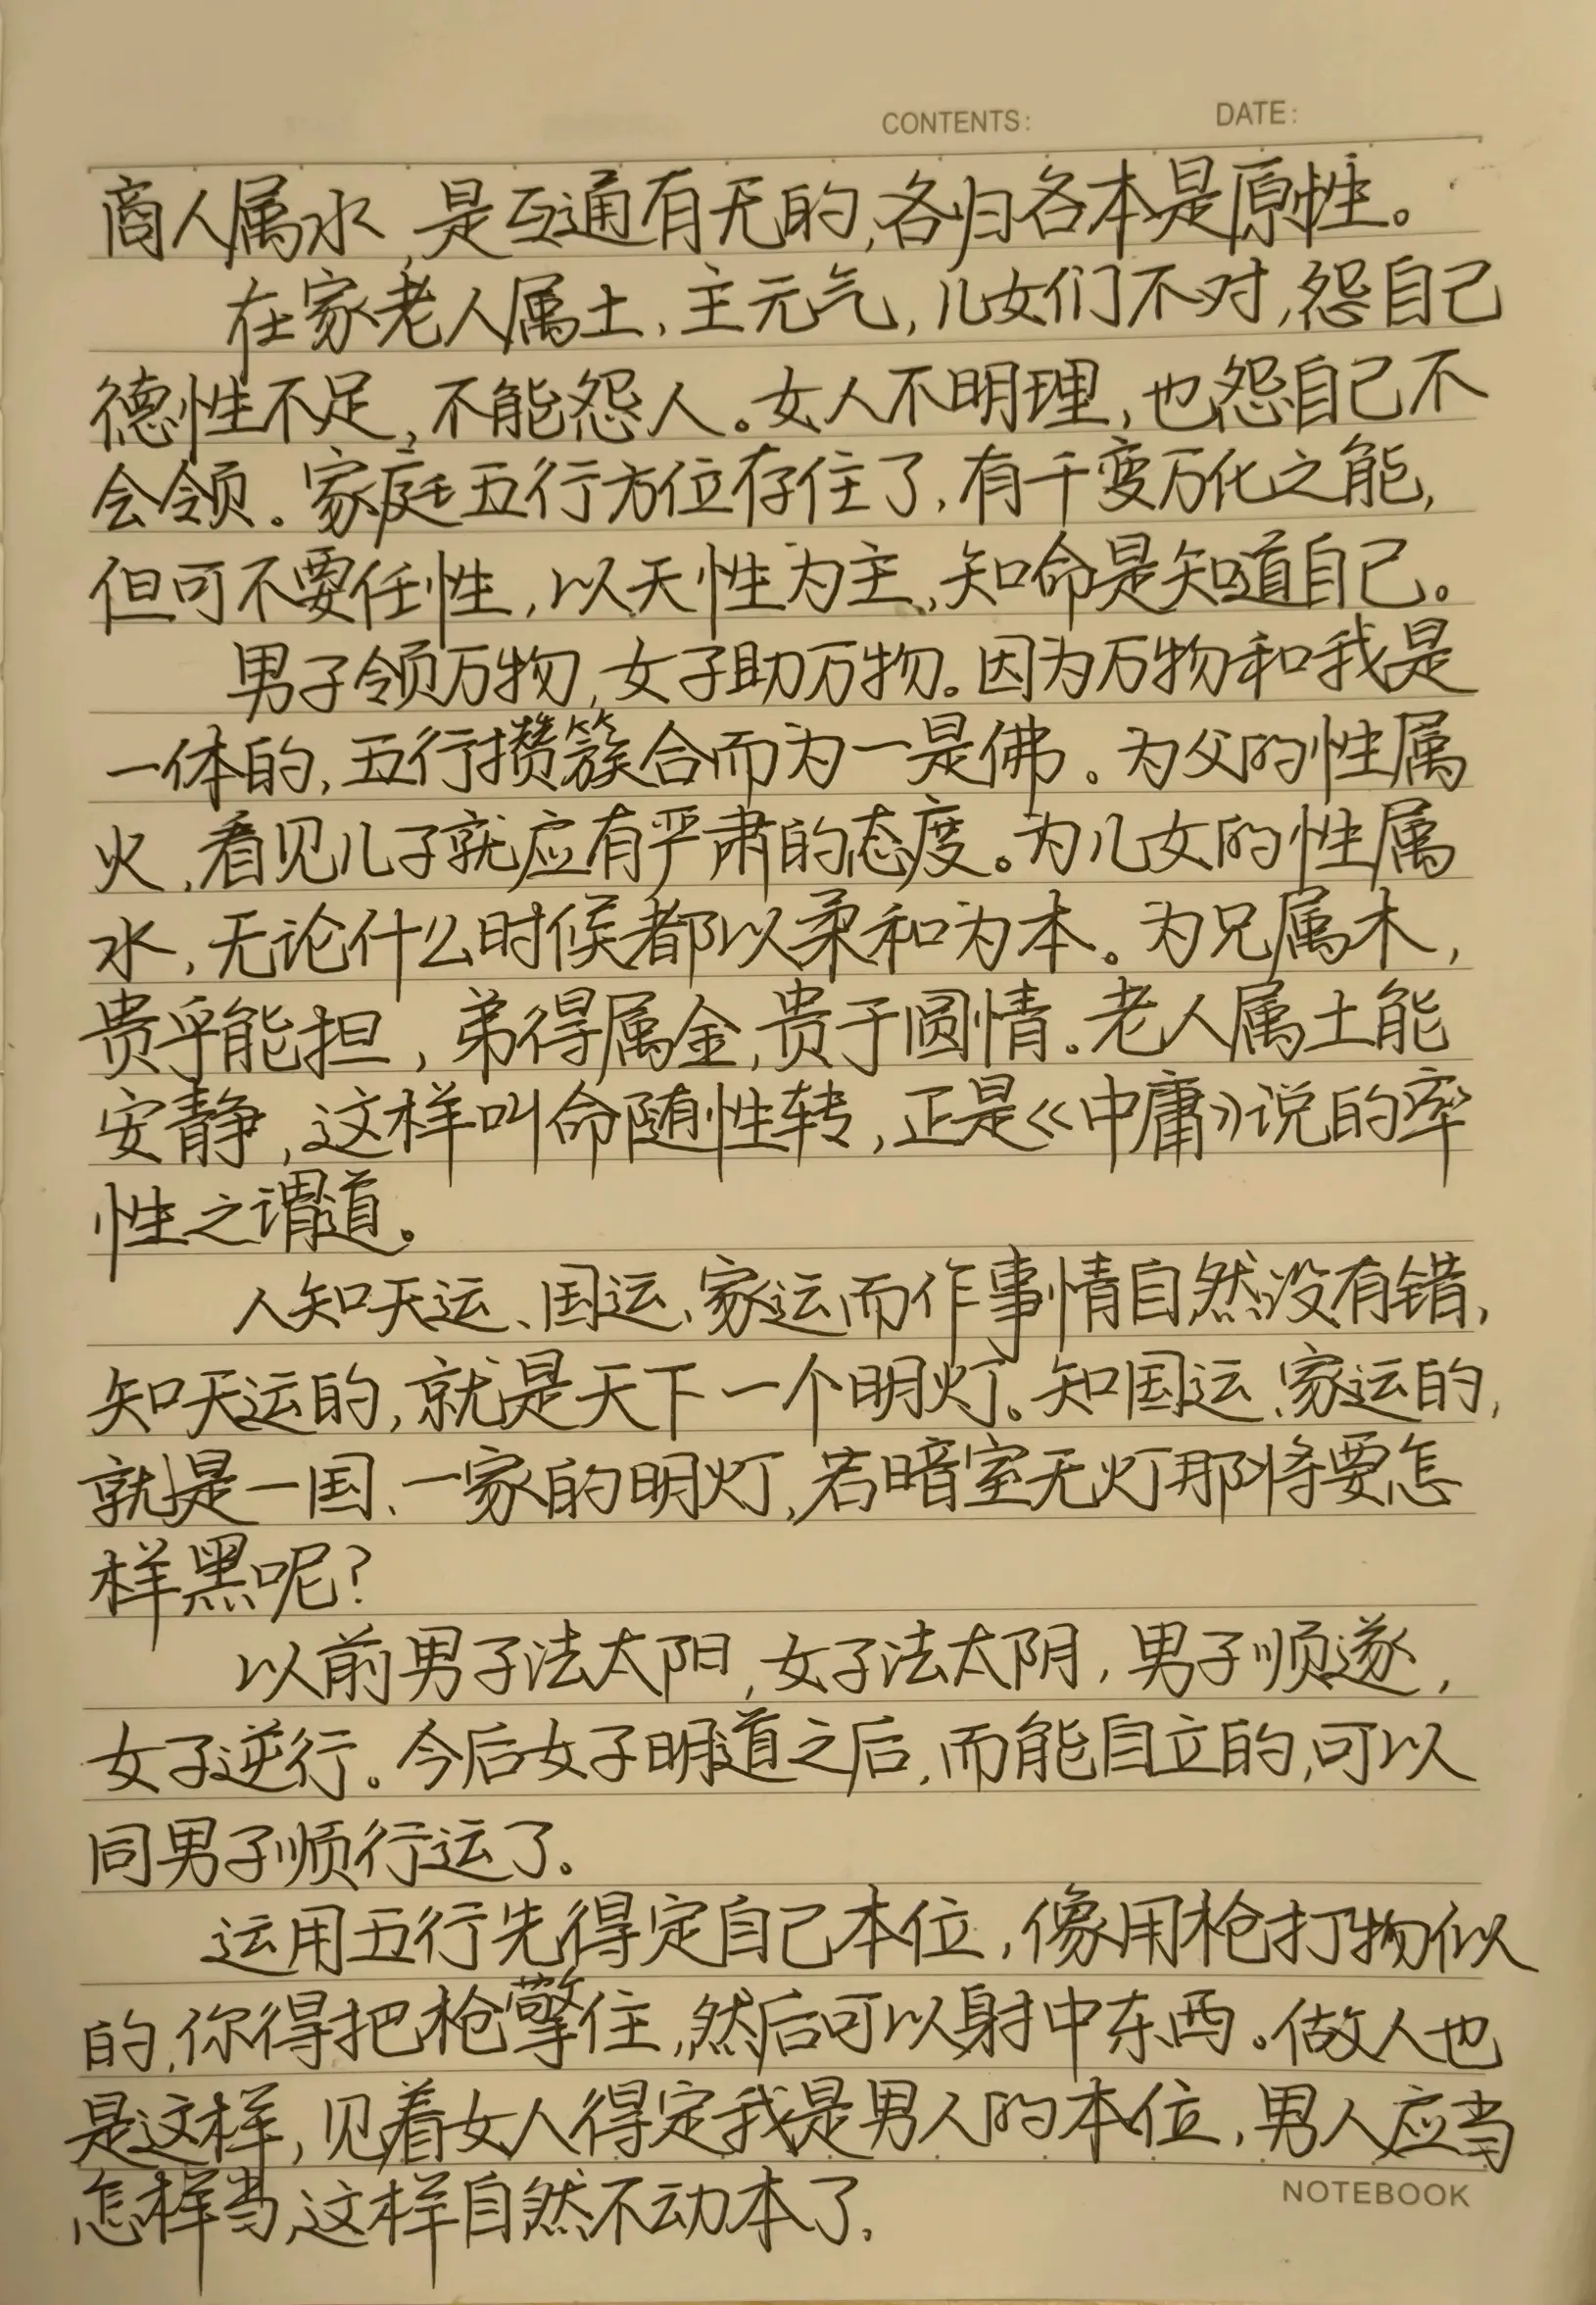 CONTENTS: DATE:
商人属水,是互通有无的,各归各本是原性。
在家老人属土,主元气,儿女们不对,怨自己
德性不足,不能怨人。女人不明理,也怨自己不
会领。家庭五行方位存住了,有千变万化之能,
但可不要任性,以天性为主,知命是知道自己。
男子领万物,女子助万物。因为万物和我是
一体的,五行攒簇合而为一是佛。为父的性属
火,看见儿子就应有严肃的态度。为儿女的性属
水,无论什么时候都以柔和为本。为兄属木,
贵乎能担,弟得属金,贵于圆情。老人属土能
安静,这样叫命随性转,正是《中庸》说的率
性之谓道。
人知天运、国运、家运而作事情自然没有错,
知天运的,就是天下一个明灯。知国运、家运的,
就是一国、一家的明灯,若暗室无灯那将要怎
样黑呢?
以前男子法太阳,女子法太阴,男子顺遂,
女子逆行。今后女子明道之后,而能自立的,可以
同男子顺行运了。
运用五行先得定自己本位,像用枪打物似
的,你得把枪擎住,然后可以射中东西。做人也
是这样,见着女人得定我是男人的本位,男人应当
怎样当,这样自然不动本了.
NOTEBOOK